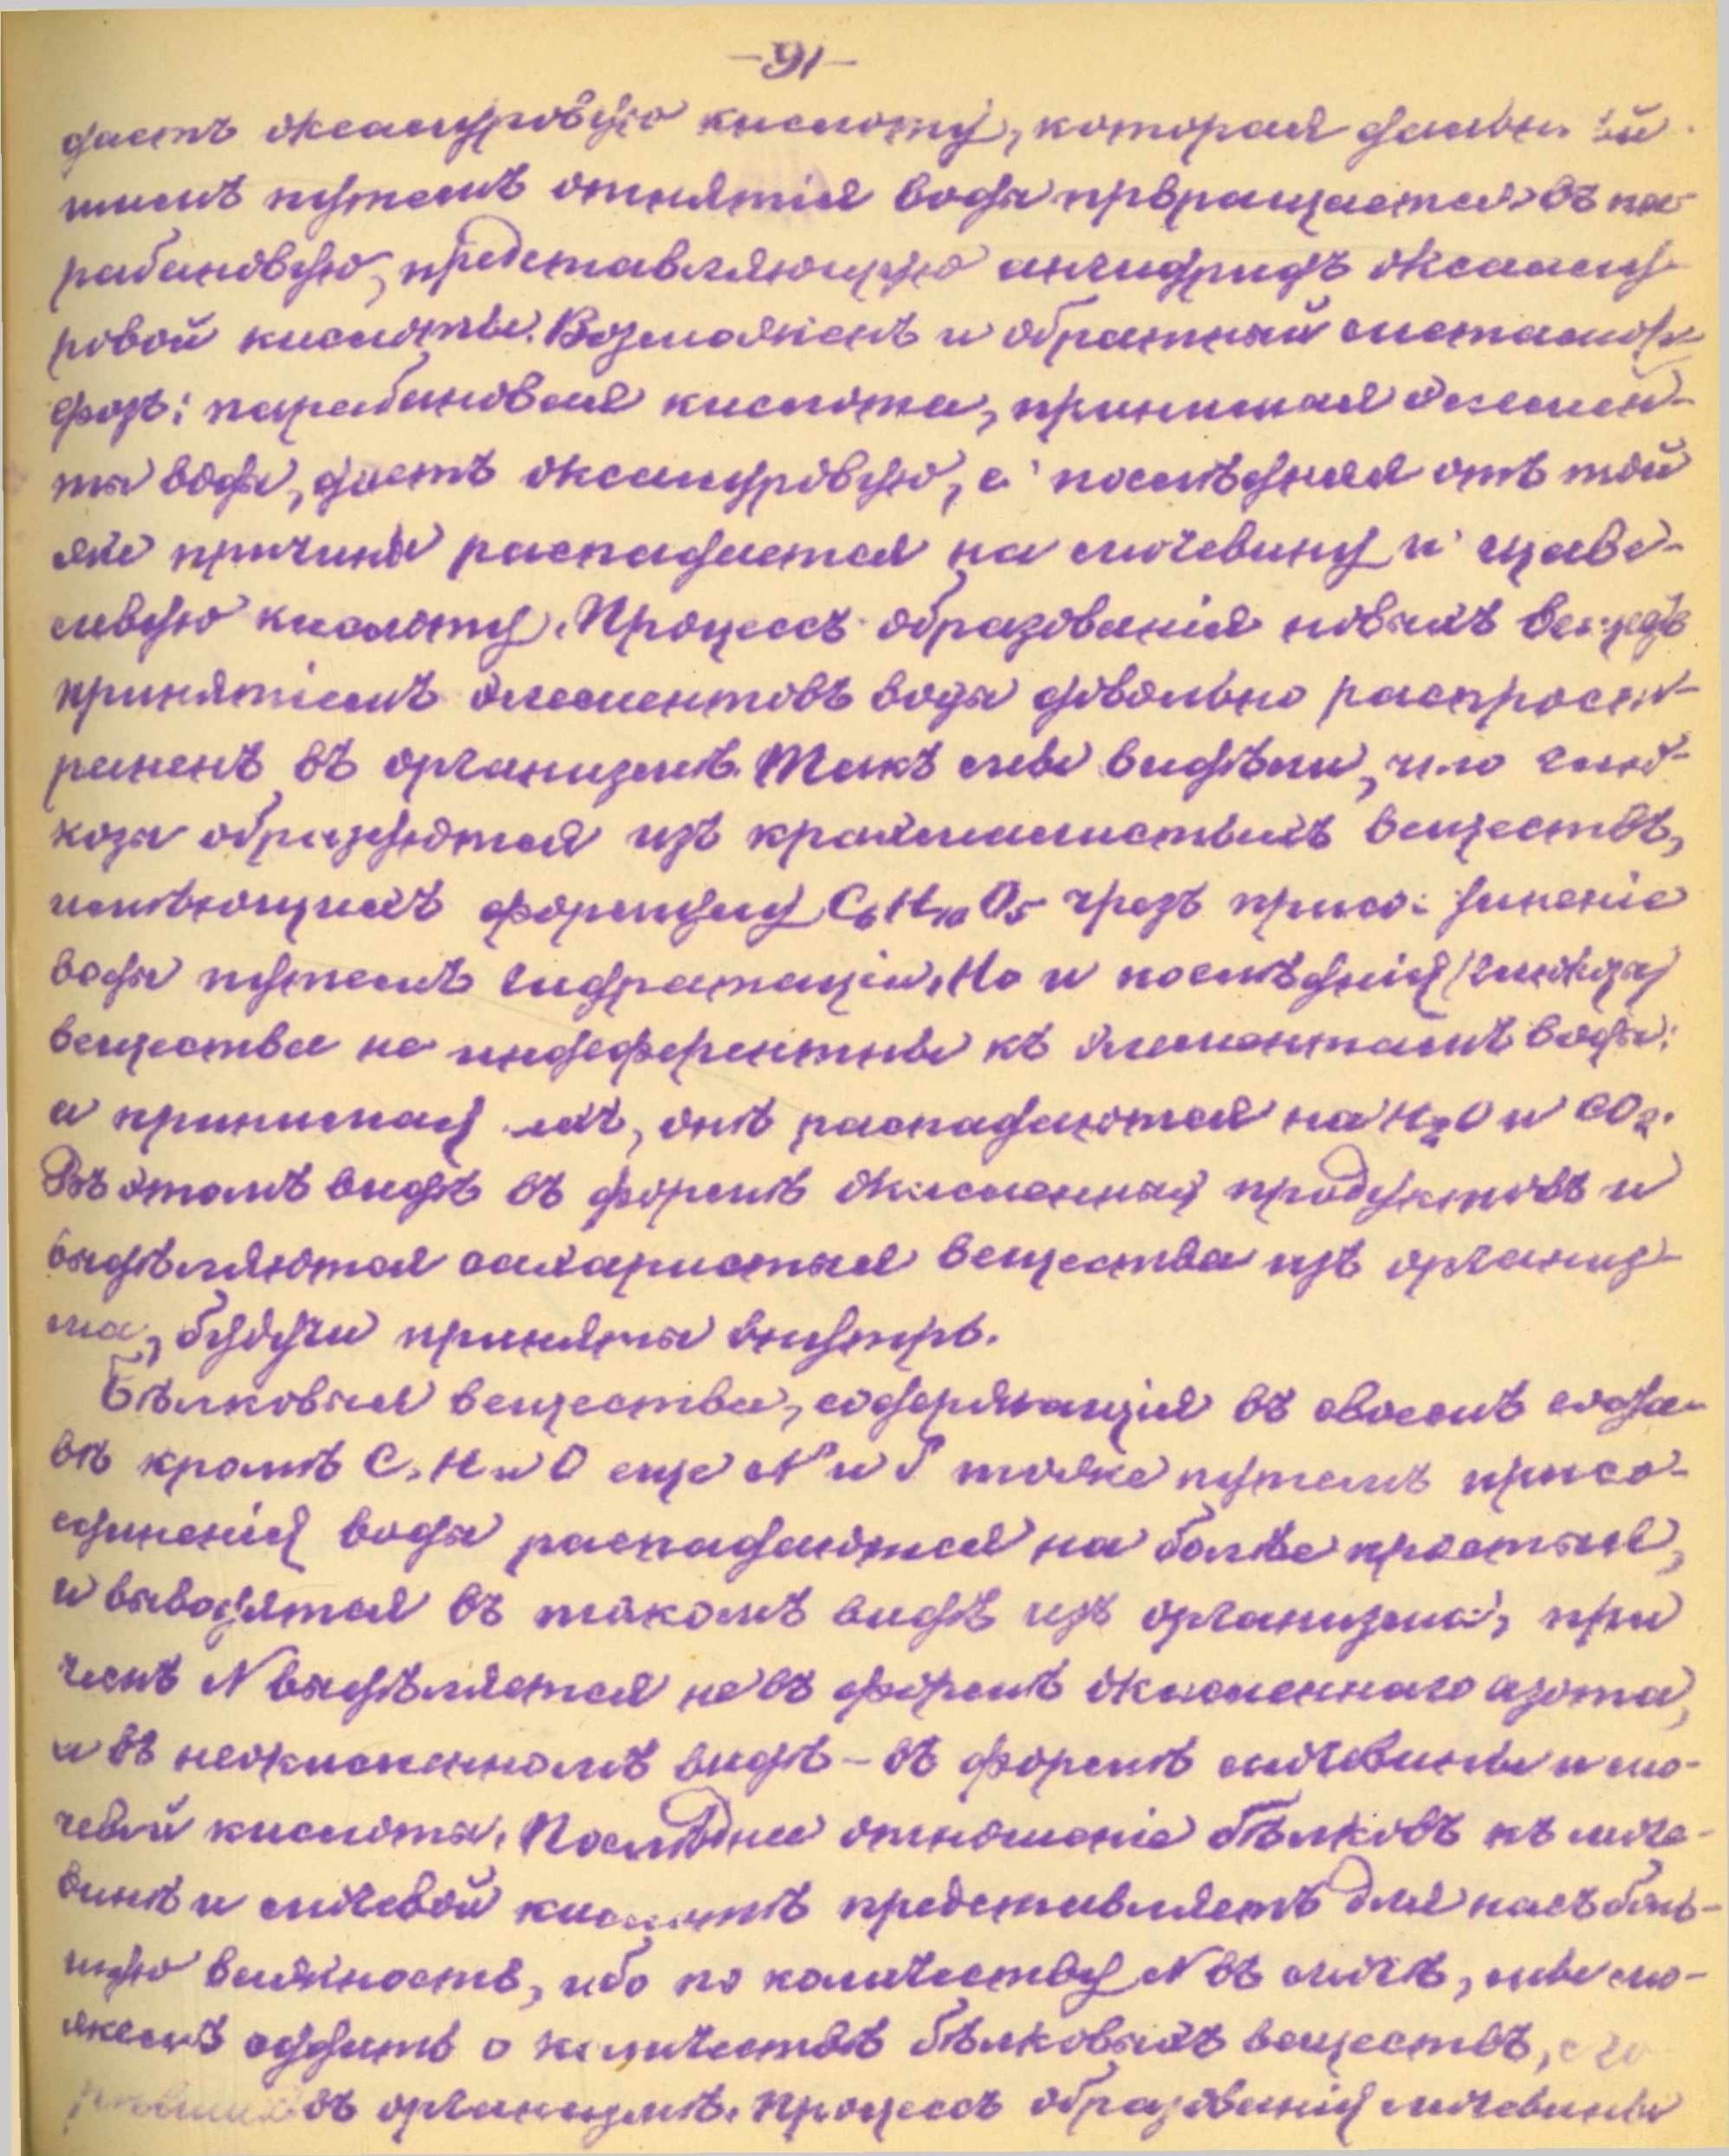 -91-
даетъ оксалуровую кислоту, которая дальнѣй
шимъ путемъ отнятія воды превращается въ па-
рабановую, представляющую ангидридъ оксалу-
ровой кислоты. Возможенъ и обратный метамор-
фозъ: парабановая кислота, принимая элемен-
ты воды, даетъ оксалуровую, а послѣдняя отъ той
же причины распадается на мочевину и щаве-
левую кислоту. Процессъ образованія новыхъ веществъ
принятіемъ элементовъ воды довольно распрост-
раненъ въ организмѣ. Такъ мы видѣли, что глю-
козы образуются изъ крахмалистыхъ веществъ,
имѣющихъ формулу C6H10O5 чрезъ присоединеніе
воды путемъ гидратаціи. Но и послѣднія (глюкозы)
вещества не индеферентны къ элементамъ воды:
а принимая ихъ, онѣ распадаются на H2O и CO2.
Въ этомъ видѣ въ формѣ окисленныхъ продуктовъ и
выдѣляются сахаристыя вещества изъ организ-
ма, будучи приняты внутрь.
Бѣлковыя вещества, содержащія въ своемъ соста-
вѣ кромѣ C, H и O еще N и S тоже путемъ присо-
единенія воды распадаются на болѣе простыя,
и выводятся въ такомъ видѣ изъ организма, при
чемъ N выдѣляется не въ формѣ окисленнаго азота,
а въ неокисленномъ видѣ - въ формѣ мочевины и мо-
чевой кислоты. Послѣднее отношеніе бѣлковъ къ моче-
винѣ и мочевой кислотѣ представляетъ для насъ боль-
шую важность, ибо по количеству N въ мочѣ, мы мо-
жемъ судить о количествѣ бѣлковыхъ веществъ,
въ организмѣ. Процессъ образованія мочевины